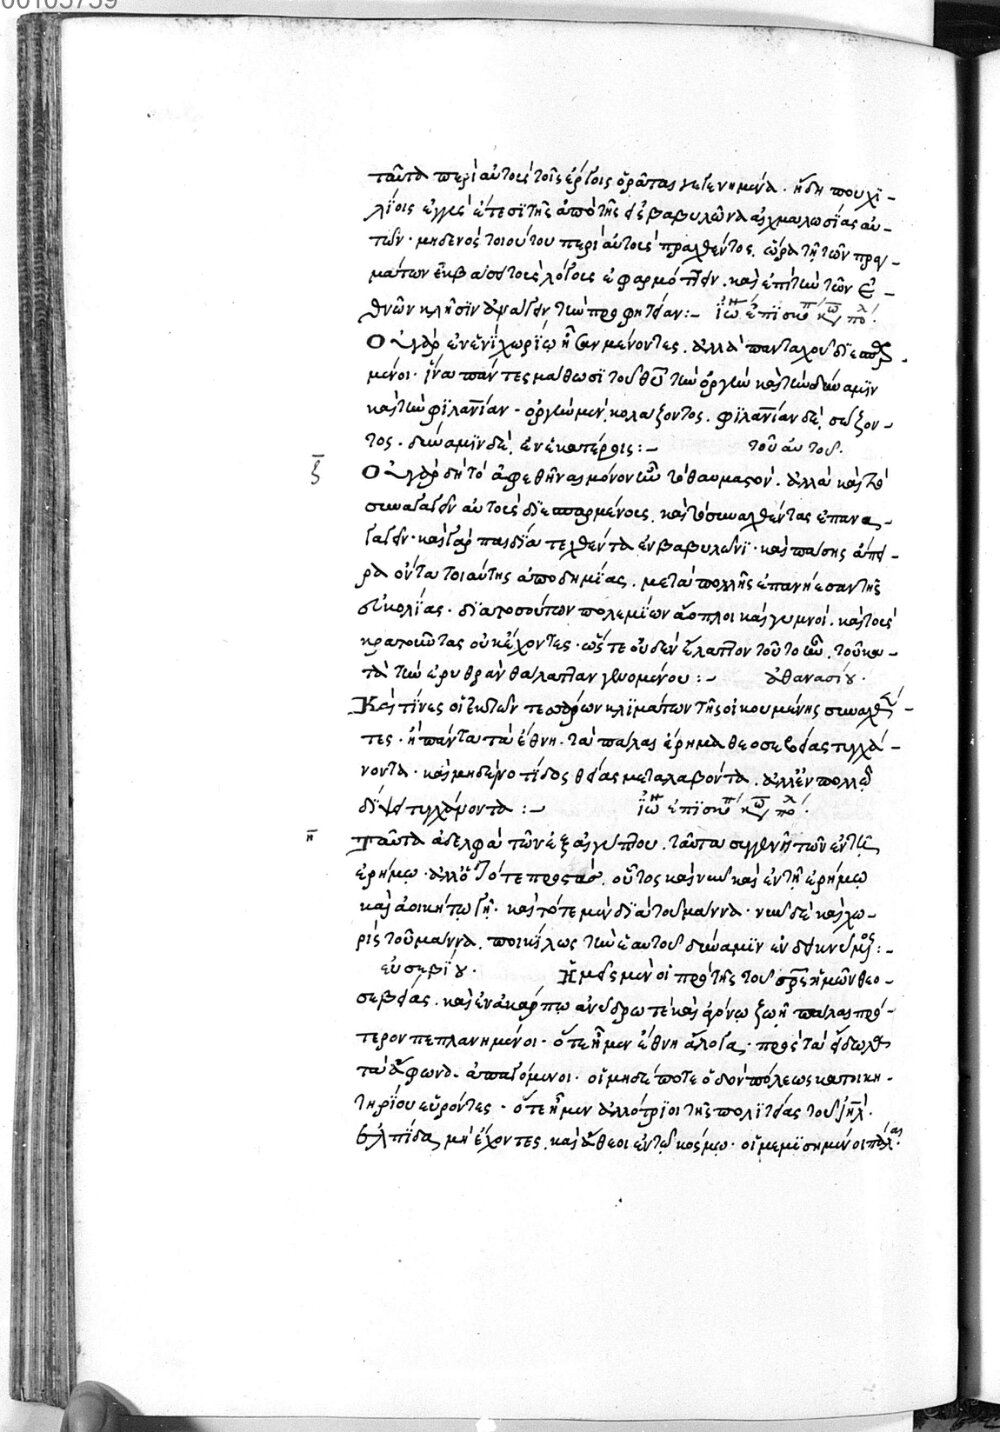 00105759
ταῦτα περὶ αὐτοὺς τοῖς ἔργοις ὁρᾶται γεγενημένα. ἤδη που χϊ-
λίοις ἐγγὺς ἔτεσϊ τῆς ἀπὸ τῆς εἰς βαβυλῶνα αἰχμαλωσίας αὐ-
τῶν. μηδενὸς τοιούτου περὶ αὐτοὺς πραχθέντος. ὥρα τῇ τῶν πραγ-
μάτων ἐκβάσει τοὺς λόγους ἐφαρμόττειν. καὶ ἐπὶ τὴν τῶν ἐ-
θνῶν κλῆσϊν ἀνάγειν τὴν προφητείαν:-
Οὐ γὰρ ἐν ἑνὶ χωρίῳ ἦσαν μένοντες. ἀλλὰ πανταχοῦ διεσπαρ-
μένοι. ἵνα πάντες μάθωσϊ τοῦ θῦ τὴν ὀργὴν καὶ τὴν δύναμϊν
καὶ τὴν φϊλανίαν. ὀργὴν μὲν, κολάζοντος. φϊλανίαν δὲ, σώζον-
τος. δύναμϊν δὲ, ἑνέκα πέρσις:- τοῦ αὐτοῦ.
ζ Οὐ γὰρ δὴ τὸ ἀφεθῆναι μόνον ἦν τὸ θαυμαστόν. ἀλλὰ καὶ τὸ
συναγαγεῖν αὐτοὺς διεσπαρμένους. καὶ τὸ συναχθέντας ἐπανα-
γαγεῖν. καὶ γὰρ παιδία τεχθέντα ἐν βαβυλῶνϊ. καὶ πάσης ἀπεί-
ρα ὄντα τοιαύτης ἀποδημίας. μετὰ πολλῆς ἐπανήεσαν τῆς
εὐκολίας. διὰ τοσούτων πολεμίων ἄοπλοι καὶ γυμνοί. καὶ τοὺς
κρατοῦντας οὐκ ἔχοντες. ὥστε οὐδὲν ἔλαττον τοῦτο ἦν, τοῦ κα-
τὰ τὴν ἐρυθρὰν θάλατταν γενομένου:- ἀθανασίου.
Καὶ τίνες οἱ ἐκ τῶν τεσσάρων κλϊμάτων τῆς οἰκουμένης συναχθέν-
τες. ἢ πάντα τὰ ἔθνη. τὰ πάλαι ἔρημα θεοσεβείας τυγχά-
νοντα. καὶ μηδὲ νοτίδος θείας μεταλαβόντα. ἀλλ' ἐν πολλῷ
δίψει τυγχάνοντα:-
η Ταῦτα ἀδελφὰ τῶν ἐξ αἰγύπτου. ταῦτα συγγενῆ τῶν ἐν τῇ
ἐρήμῳ. ἀλλ' ὁ τότε προστάς, οὗτος καὶ νῦν καὶ ἐν τῇ ἐρήμῳ
καὶ ἀοικήτῳ γῇ. καὶ τότε μὲν διὰ τοῦ μάννα. νῦν δὲ καὶ χω-
ρὶς τοῦ μάννα. ποικίλως τὴν ἑαυτοῦ δύναμϊν ἐνδεικνύμενος:-
εὐσεβίου. Ἡμεῖς μὲν οἱ πρὸ τῆς τοῦ σρς ἡμῶν θεο-
σεβείας. καὶ ἐν ἀκάρπῳ ἀνύδρῳ τε καὶ ἀγόνῳ ζωῇ πάλαι πρό-
τερον πεπλανημένοι. ὅτε ἦμεν ἔθνη ἄλογα, πρὸς τὰ εἴδωλα
τὰ ἄφωνα ἀπαγόμενοι. οἱ μηδέποτε ὁδὸν πόλεως κατοικη-
τηρίου εὑρόντες. ὅτε ἦμεν ἀλλότριοι τῆς πολϊτείας τοῦ ἰηλ.
ἐλπϊδα μὴ ἔχοντες, καὶ ἄθεοι ἐν τῷ κόσμῳ. οἱ μεμϊσημένοι πάλαι